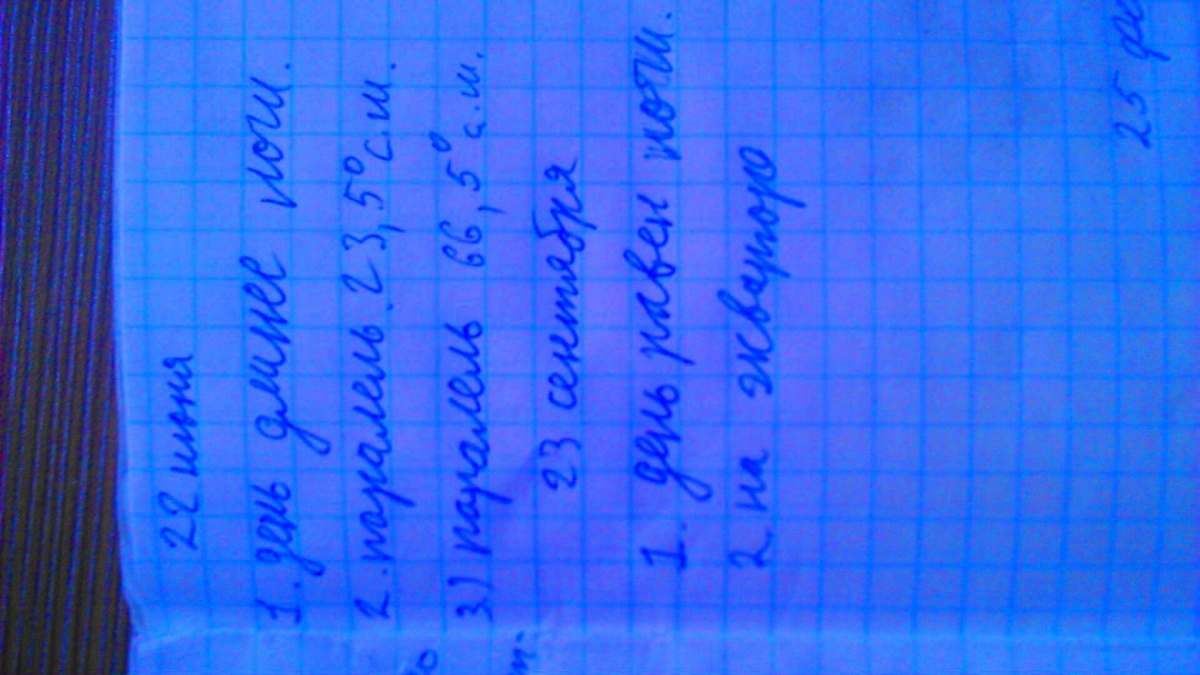 22 июня
1. день длинее ночи.
2. паралель 23,5° с.ш.
3) паралель 66,5° с.ш.
23 сентября
1. день равен ночи.
2. на экватор
25